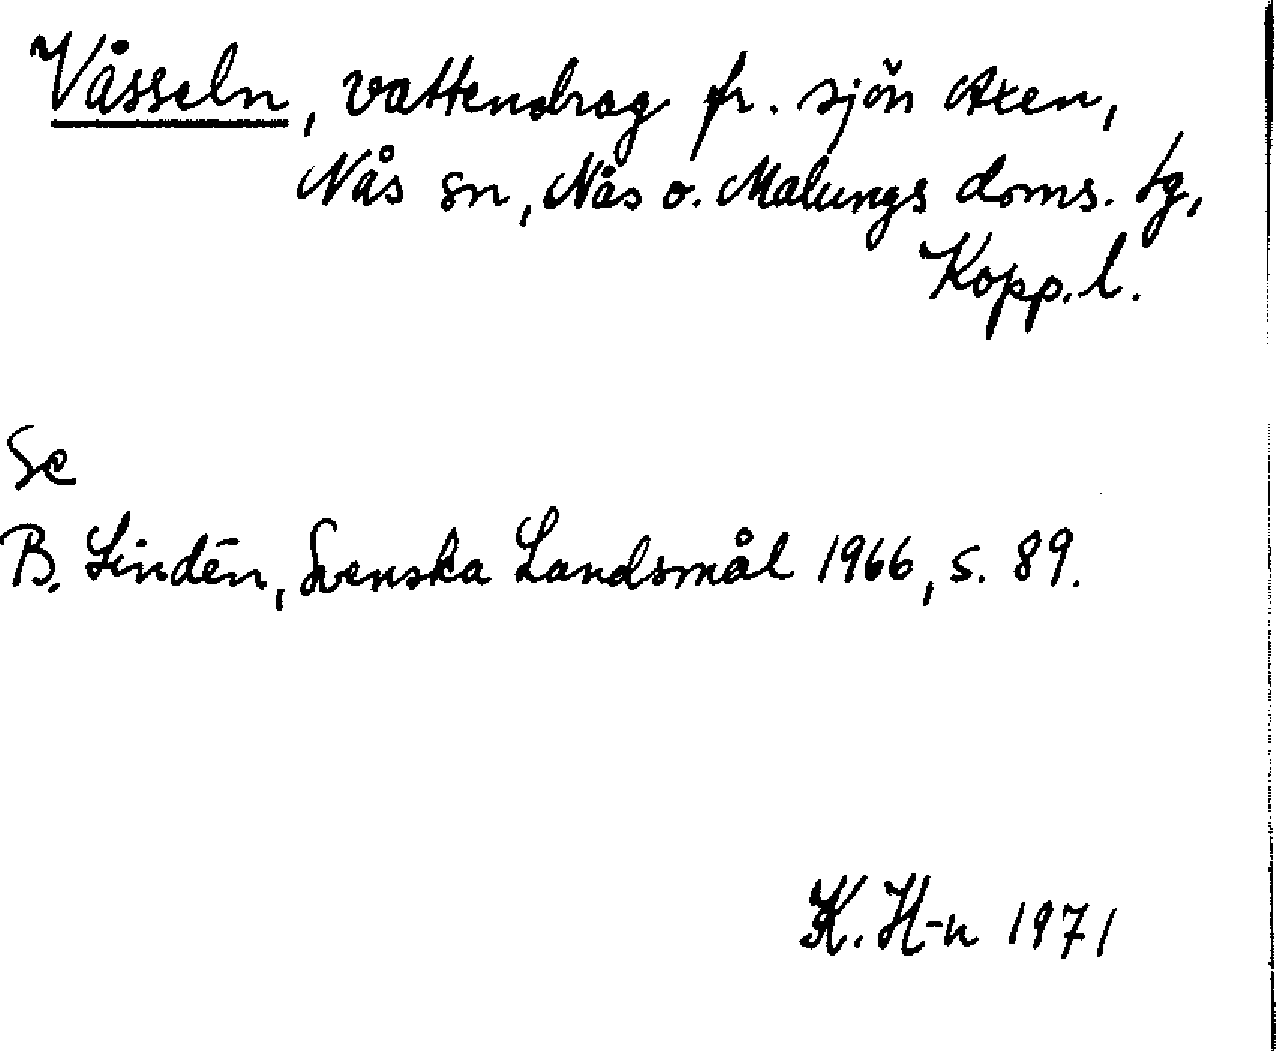 Våsseln, vattendrag fr. sjön Axen,
Nås sn, Nås o. Malungs doms. tg,
Kopp. l.
Se
B. Lindén, Svenska Landsmål 1966, s. 89.
K. H-n 1971